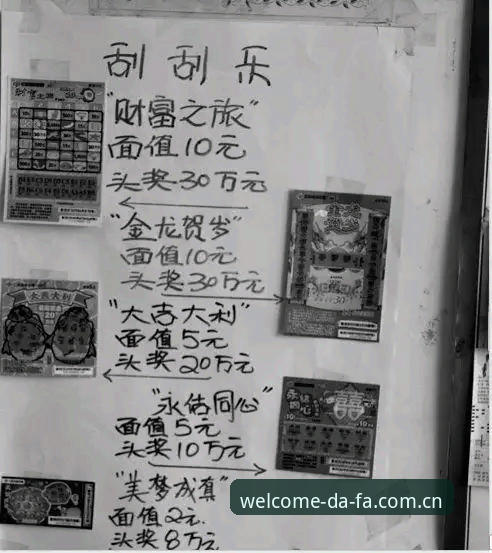 刮刮乐
"财富之旅"
面值10元
头奖30万元
"金龙贺岁"
面值10元
头奖30万元
"大吉大利"
面值5元
头奖20万元
"永结同心"
面值5元
头奖10万元
"美梦成真"
面值2元
头奖8万元
大吉大利
永结同心
囍
welcome-da-fa.com.cn